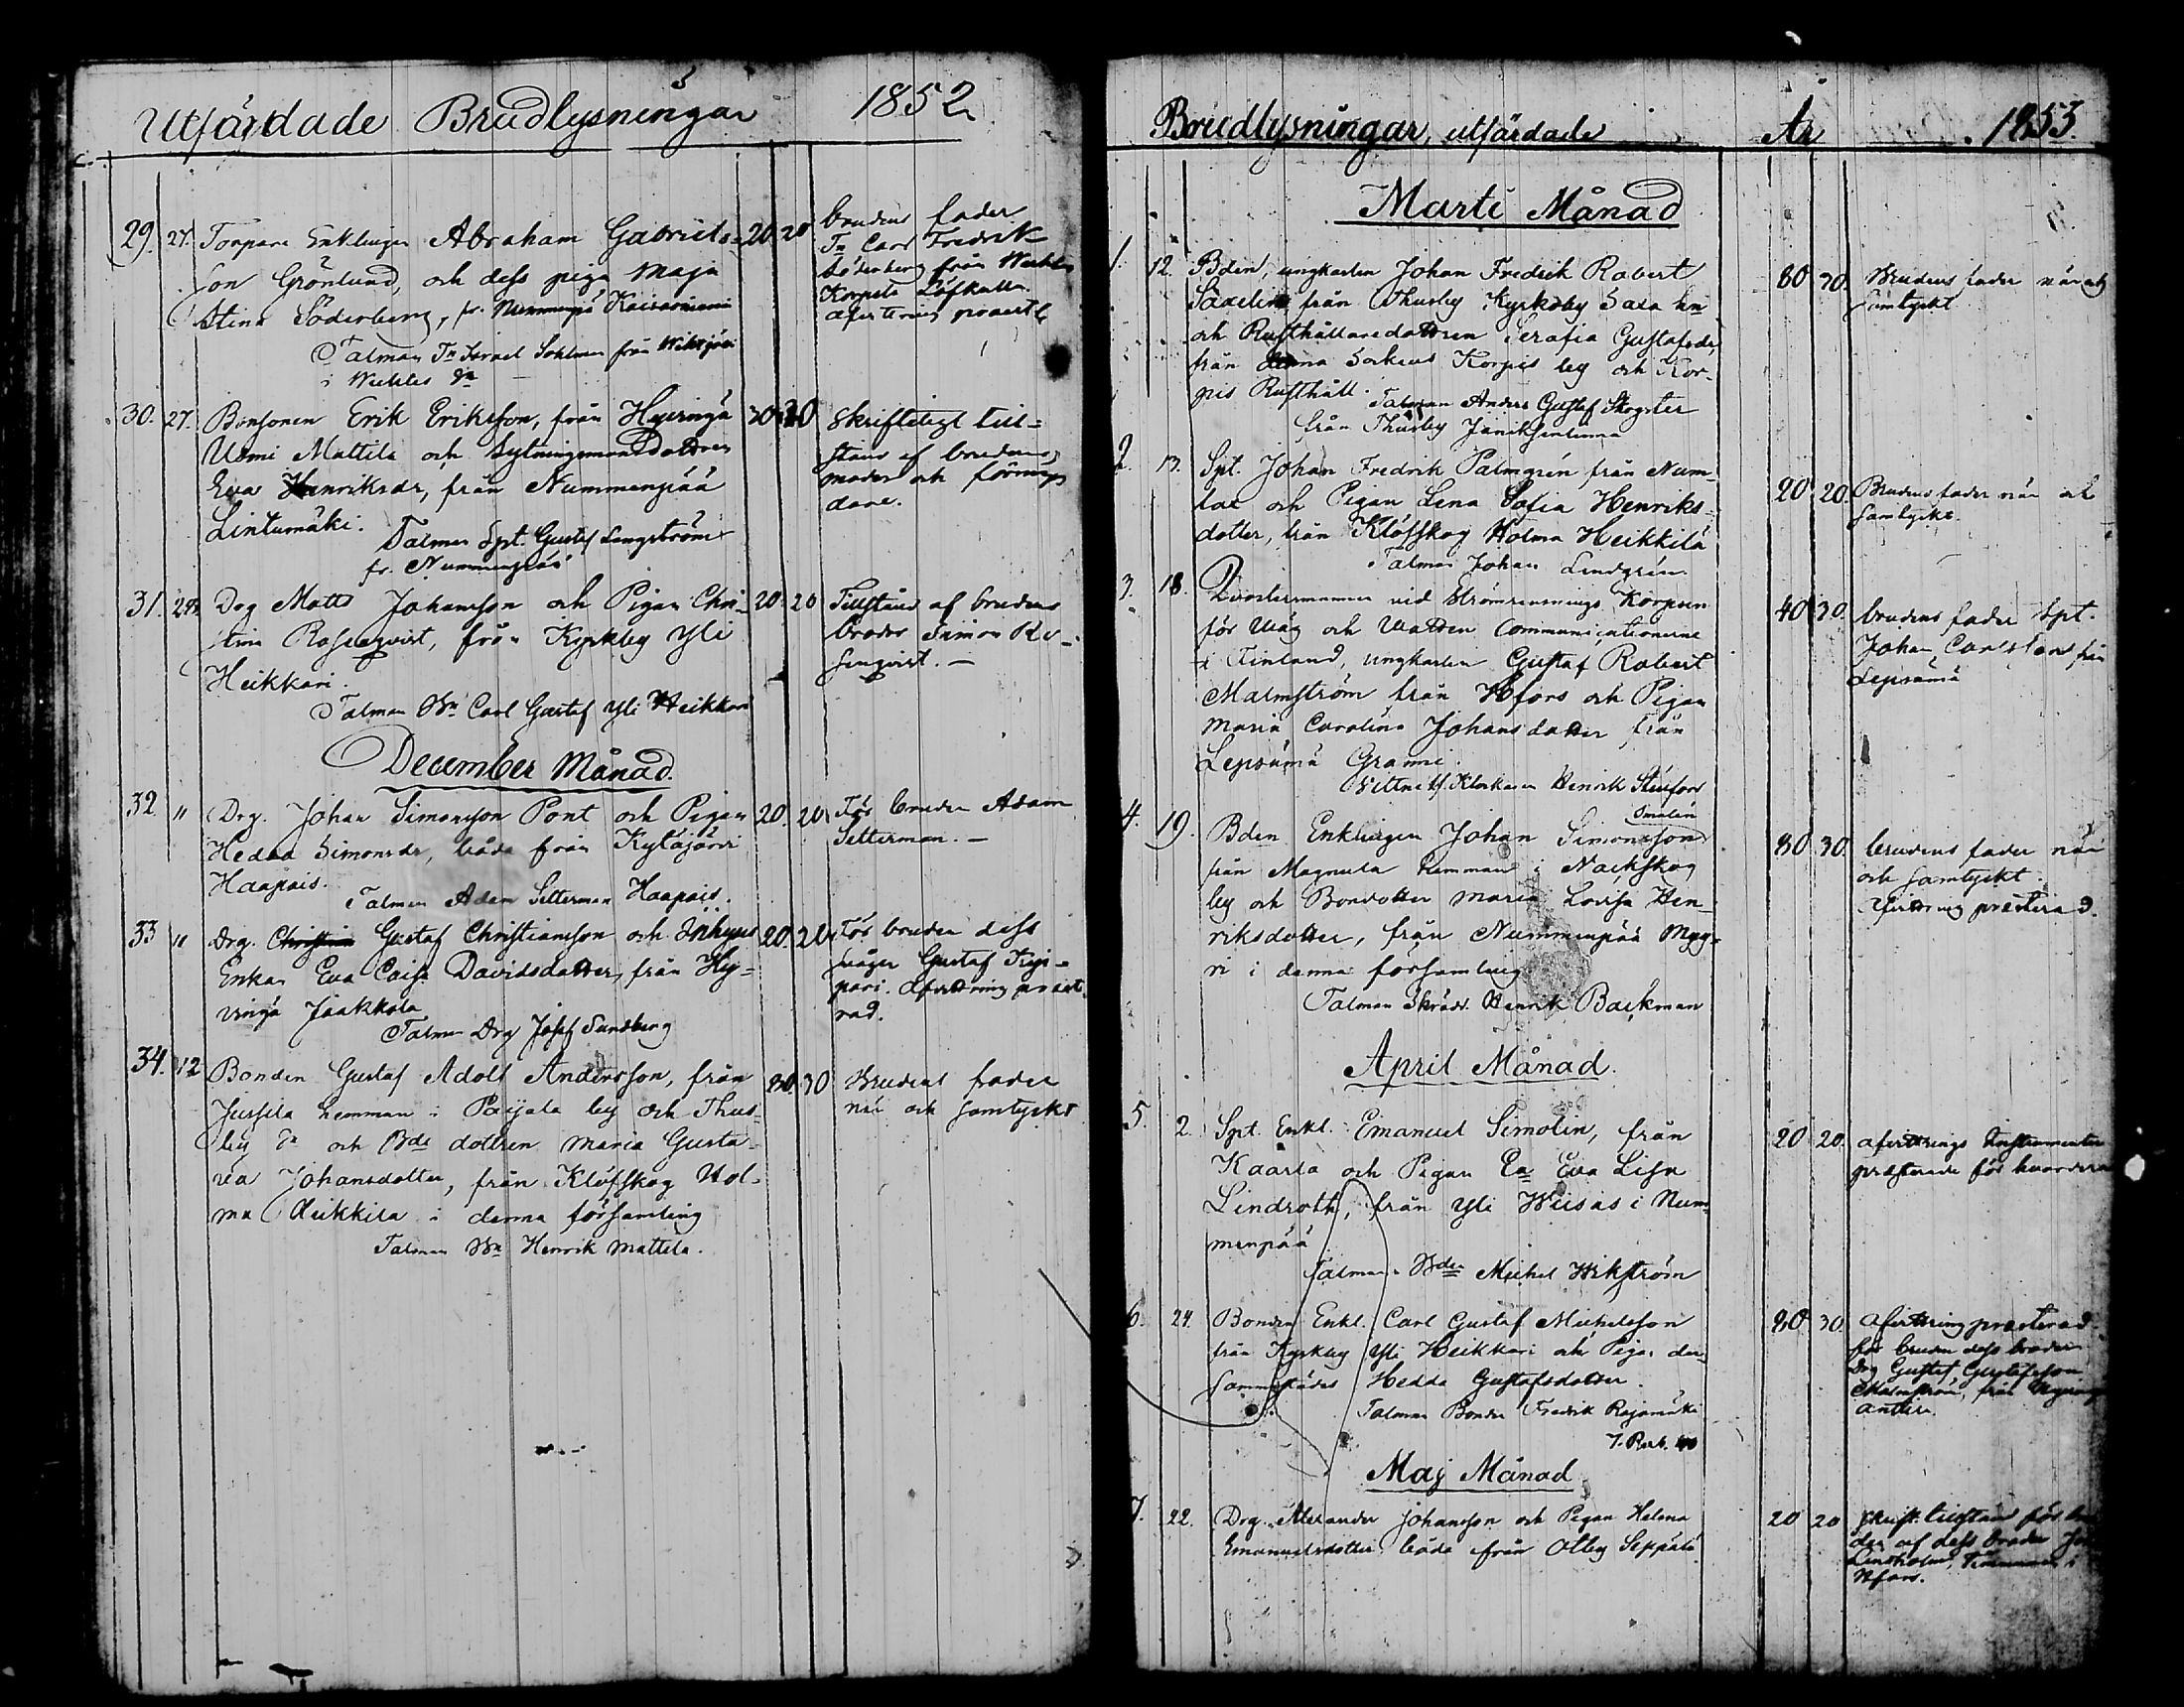 Utfärdade Brudlysningar 1852
29. 27. Torpare Enklingen Abraham Gabriels- 20 20
son Grönlund, och dess piga Maja
Stina Söderberg, fr. Nummenpä
Talman Tn Israel Sohlman från
i Wichtis Sn
brudens fader
Tn Carl Fredrik
Söderberg från Wichtis
30. 27. Bonsonen Erik Eriksson, från Hyvingä 30 20
Usmi Mattila och Sytningsmansdottren
Eva Henriksdr, från Nummenpää
Lintumäki.
Talman Spt. Gustaf Lengström
fr. Nummenpää
Skrifteligt till-
stånd af brudens
moder och förmyn
dare.
31. 28. Drg Matts Johansson och Pigan Chri- 20 20
stina Rosenqvist, från Kyrkby Yli
Heikkari.
Talman Bn Carl Gustaf Yli Heikkari
Tillstånd af brudens
broder Simon Ro-
senqvist. —
December Månad.
32 " Drg. Johan Simonsson Pont och Pigan 20. 20.
Hedda Simonsdr, båda från Kytäjärvi
Haapais.
Talman Adam Setterman Haapais.
För bruden Adam
Setterman. —
33 " Drg. Christian Gustaf Christiansson och Inhyses 20. 20.
Enkan Eva Caisa Davidsdotter, från Hy-
vingä Jaakkola
Talman Drg Josef Sundberg
För bruden dess
svåger Gustaf
34. 12 Bonden Gustaf Adolf Andersson, från 30. 30
Jussila hemman i Paijala by och Thus-
by Sn och Bde dottren Maria Gusta-
va Johansdotter, från Klöfskog Hol-
ma Heikkila i denna församling
Talman Bn Henrik Mattila.
Brudens fader
när och samtyckt
Brudlysningar, utfärdade År 1853.
Marti Månad
1. 12. Bden, ungkarlen Johan Fredrik Robert 30 30.
Saxelin från Thusby Kyrkoby Saxa hn
och Rusthållaredottren Serafia Gustafsdr,
från denna Sockens Korpis by och Kor-
pis Rusthåll.
Talman Anders Gustaf Skogster
från Thusby
Brudens fader när och
samtyckt
2. 13. Spt. Johan Fredrik Palmgrén från Num- 20 20.
lax och Pigan Lena Sofia Henriks-
dotter, från Klöfskog Holma Heikkilä
Talman Johan Lindgrén
Brudens fader när och
samtyckt.
3. 18. vid Strömrensnings Korpsen 40 30.
för Wäg och Watten Communicationerne
i Finland, ungkarlen Gustaf Robert
Malmström från Hfors och Pigan
Maria Carolina Johansdotter från
Lepsämä Grannі.
Vittne bf. Klockaren Henrik Stenfors
brudens fader Spt.
Johan Carlsson från
Lepsämä
4. 19. Bden Enklingen Johan Simonsson Smalén 30 30.
från Magnula hemman i Nackskog
by och Bondotter Maria Lovisa Hen-
riksdotter, från Nummenpää Myy-
ri i denna församling
Talman Skrädd. Henrik Backman
brudens fader när
och samtyckt.
Afvittring præsterad.
April Månad.
5. 2. Spt. Enkl. Emanuel Simolin, från 20 20.
Kaarla och Pigan Ea Eva Lisa
Lindroth, från Yli Wiisas i Num-
menpää
Talman Bden Michel Wikström
Afvittrings Instrumenter
præsterade för hvardera
6. 24. Bonden Enkl. Carl Gustaf Michelsson 30 30.
från Kyrkby Yli Heikkari och Pigan der-
sammastädes Hedda Gustafsdotter.
Talman Bonden Fredrik Rajamäki
Afvittring præsterad.
för bruden dess broder
Drg Gustaf Gustafsson
Malmström, från Hyvinge
Anttila.
Maj Månad
7. 22. Drg. Alexander Johansson och Pigan Helena 20 20
Emanuelsdotter båda från Otby Seppälä
Skrift. tillstånd för bru
den af dess broder Joh
Lindholm, i
Hfors.